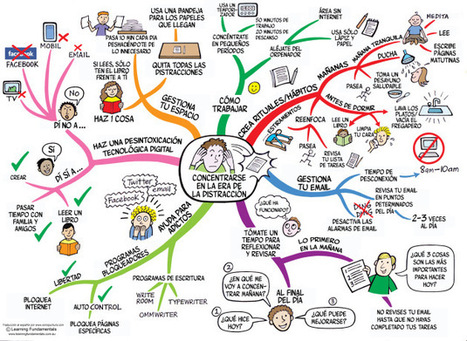 CONCENTRARSE
EN LA ERA DE
LA DISTRACCIÓN
GESTIONA
TU ESPACIO
USA UNA BANDEJA
PARA LOS PAPELES
QUE LLEGAN
PASA 10 MIN CADA DIA
DESHACIÉNDOTE DE
LO NECESARIO
SI LEES, SÓLO TEN
EL LIBRO FRENTE
A TI
QUITA TODAS LAS
DISTRACCIONES
HAZ 1 COSA
CÓMO
TRABAJAR
CONCÉNTRATE
EN PEQUEÑOS
PERÍODOS
USA UN
TEMPORI-
ZADOR
10 MINUTOS DE
TRABAJO
DESCANSO
ALÉJATE DEL
ORDENADOR
ÁREA SIN
INTERNET
USA SÓLO
LÁPIZ Y
PAPEL
CREA RITUALES/HÁBITOS
MAÑANAS
MAÑANA TRANQUILA
MEDITA
LEE
ESCRIBE
PÁGINAS
MATUTINAS
DUCHA
TOMA UN
DESAYUNO
SALUDABLE
PASEA
ANTES DE DORMIR
LAVA LOS
PLATOS/
VACÍA EL
FREGADERO
LIMPIA
TU CARA
LEE UN
LIBRO
REVISA TU
LISTA TAREAS
ESTIRAMIENTOS
REENFOCA
PASEA
GESTIONA
TU EMAIL
TIEMPO DE
DESCONEXIÓN
8am-10am
REVISA TU EMAIL
EN PUNTOS
DETERMINADOS
DEL DÍA
2-3 VECES
AL DÍA
DING
DING
DESACTIVA LAS
ALARMAS DE EMAIL
TÓMATE UN
TIEMPO PARA
REFLEXIONAR
Y REVISAR
¿QUÉ HA
FUNCIONADO?
LO PRIMERO
EN LA MAÑANA
¿QUÉ 3 COSAS
SON LAS MÁS
IMPORTANTES
PARA HACER
HOY?
NO REVISES TU EMAIL
HASTA QUE NO HAYAS
COMPLETADO TUS TAREAS
AL FINAL
DEL DÍA
1
¿QUÉ HICE
HOY?
2
¿EN QUÉ ME VOY
A CONCEN-
TRAR MAÑANA?
3
¿QUÉ PUEDE
MEJORARSE?
AYUDA PARA
ADICTOS
Twitter
email
Facebook
PROGRAMAS DE ESCRITURA
WRITE
ROOM
TYPEWRITER
OMMWRITER
PROGRAMAS
BLOQUEADORES
LIBERTAD
BLOQUEA
INTERNET
AUTO CONTROL
BLOQUEA PÁGINAS
ESPECÍFICAS
HAZ UNA DESINTOXICACIÓN
TECNOLÓGICA DIGITAL
DÍ NO A...
No
FACEBOOK
MOBIL
EMAIL
TV
DÍ SÍ A...
Sí
CREAR
PASAR TIEMPO
CON FAMILIA
Y AMIGOS
LEER UN
LIBRO
© Learning Fundamentals
www.learningfundamentals.com.au